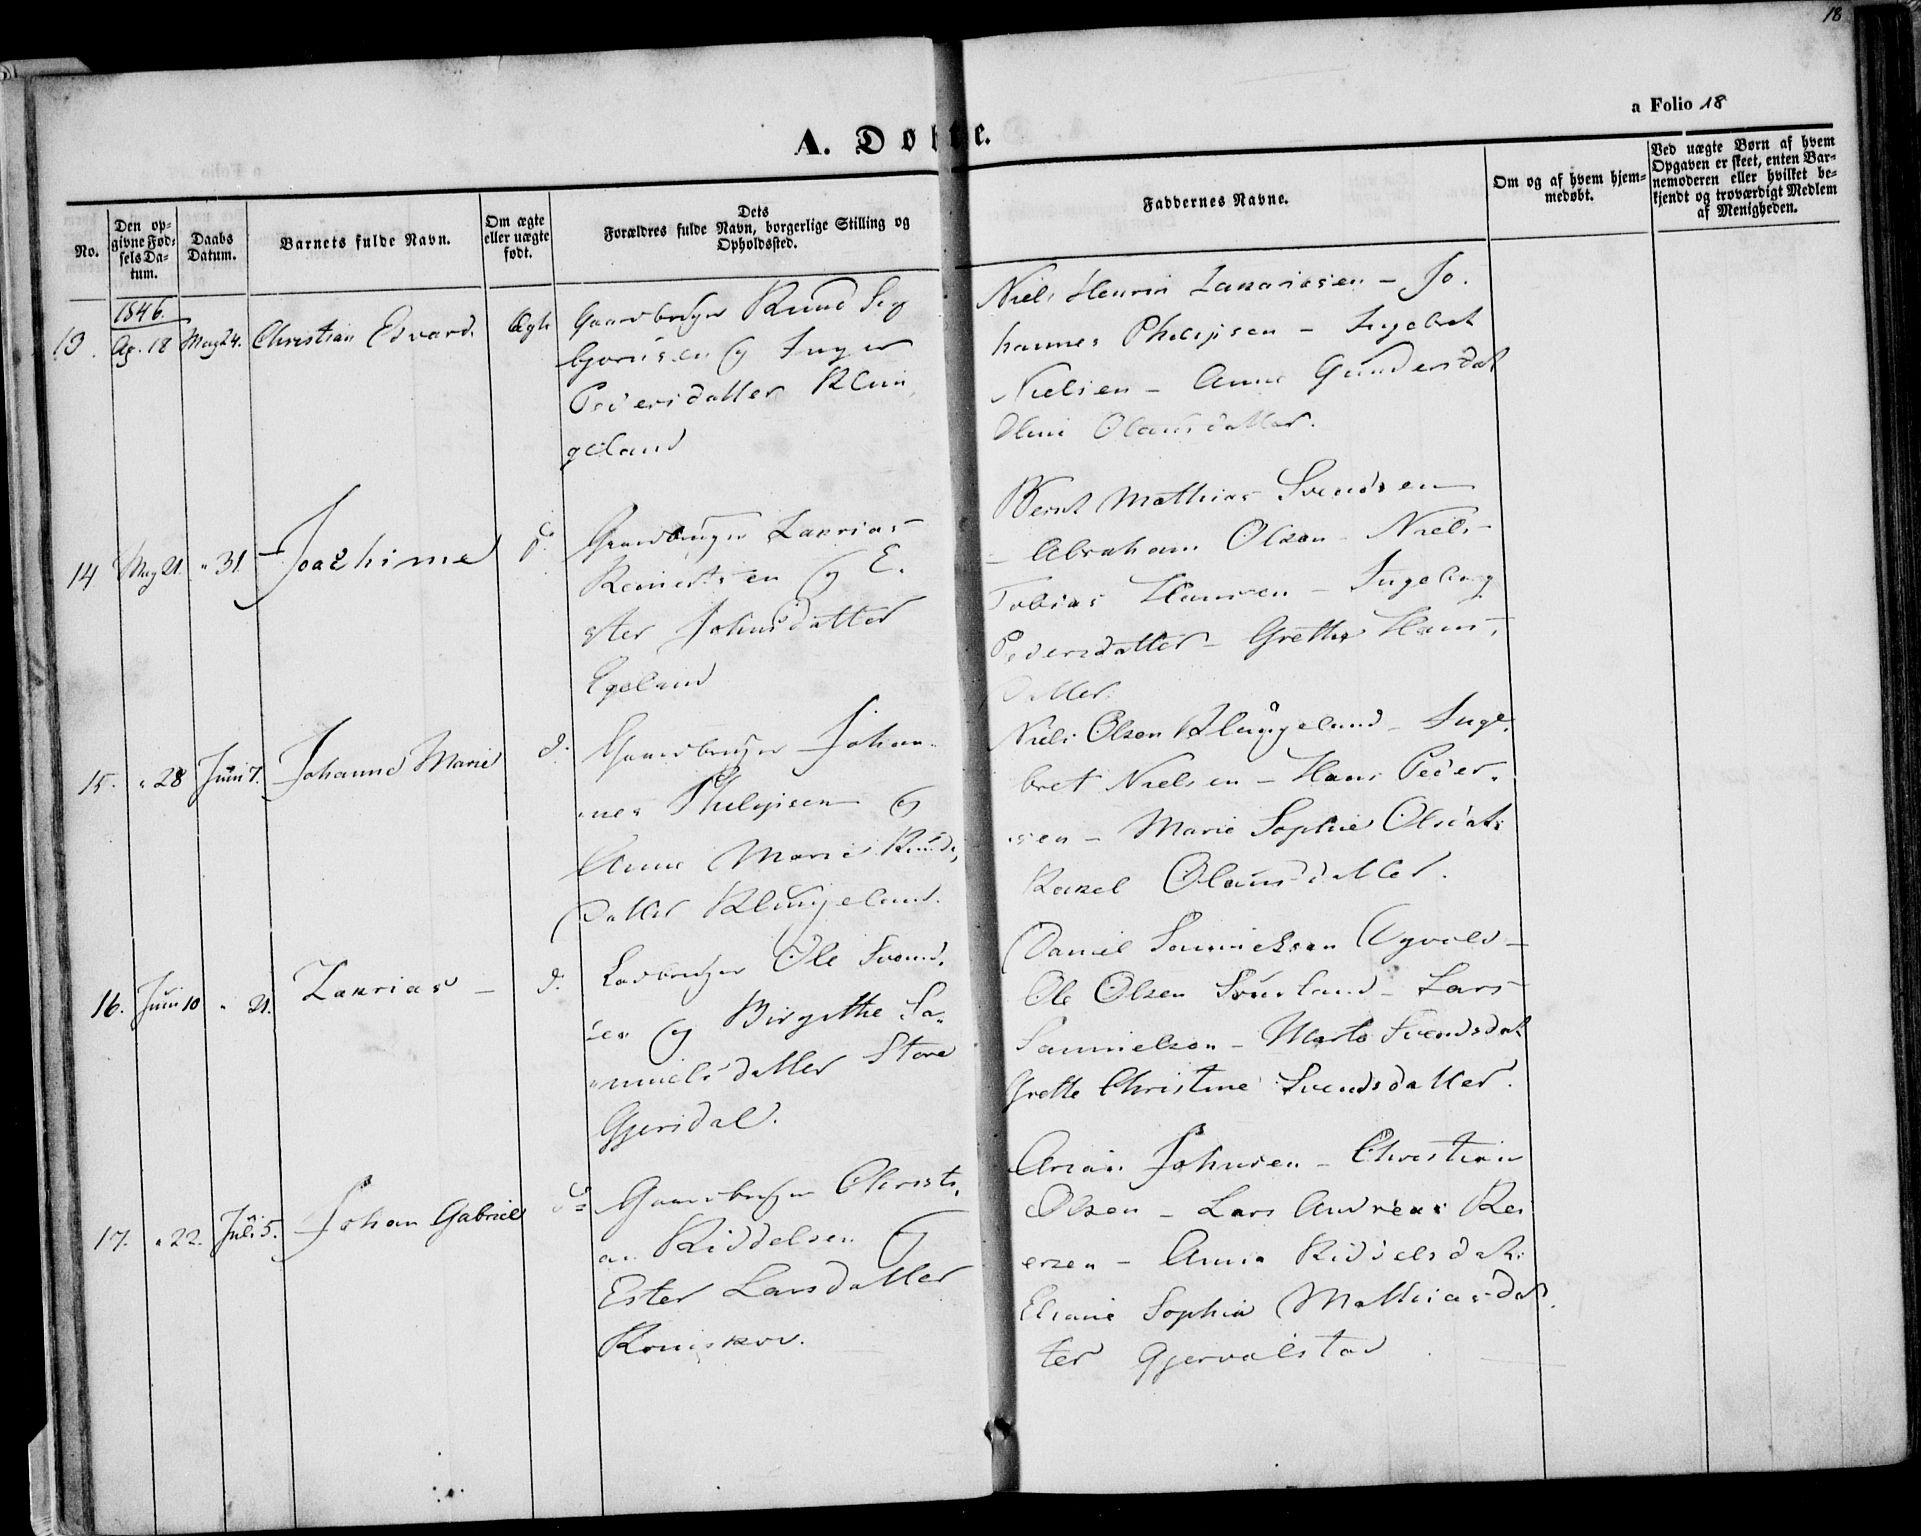 18
a Folio 18
A. Døbte.
No.
Den op-
givne Fød-
sels Da-
tum.
Daabs
Datum.
Barnets fulde Navn.
Om ægte
eller uægte
født.
Dets
Forældres fulde Navn, borgerlige Stilling og
Opholdssted.
Faddernes Navne.
Om og af hvem hjem-
medøbt.
Ved uægte Børn af hvem
Opgaven er skeet, enten Bar-
nemoderen eller hvilket be-
kjendt og troværdigt Medlem
af Menigheden.
1846.
13. Ap. 18 May 24. Christian Edvard. Ægte
Gaardbruger Knud Sig
bjørnsen og Inger
Pedersdatter Klun
geland
Niels Henrik Zakariasen - Jo.
hannes Philipsen - Ingebret
Nielsen - Anne Gundersdat
Oline Olausdatter.
14 May 21. " 31. Joachime d.
Gaardbruger Zakrias
Reinertsen og E.
ster Johnsdatter
Egeland
Bernt Mathias Svendsen
- Abraham Olsen - Niels
Tobias Hansen - Ingeborg
Pedersdatter - Grethe Hans-
datter.
15. " 28 Juni 7. Johanne Marie d.
Gaardbruger Johan-
nes Philipsen og
Anne Marie Knuds,
datter Klungeland.
Niels Olsen Klungeland - Inge.
bret Nielsen - Hans Peder-
sen - Marie Sophie Olsdatr
Rakel Olausdatter.
16. Juni 10 " 21. Zakrias - d.
Ladbruger Ole Svend.
sen og Birgithe Sa-
muelsdatter Store
Gjersdal.
Daniel Samuelsen Øgvold -
Ole Olsen - Lars
Samuelsen - Marte Svendsdat
Grethe Christine Svendsdatter.
17. " 22. Juli 5. Johan Gabriel d.
Gaardbruger Christi,
an Kiddelsen og
Ester Larsdatter
Johnsen - Christian
Olsen - Lars Andreas Rei
ersen - Anna Kiddelsdatr
Sophia Mathiasdat
ter Gjervolstad